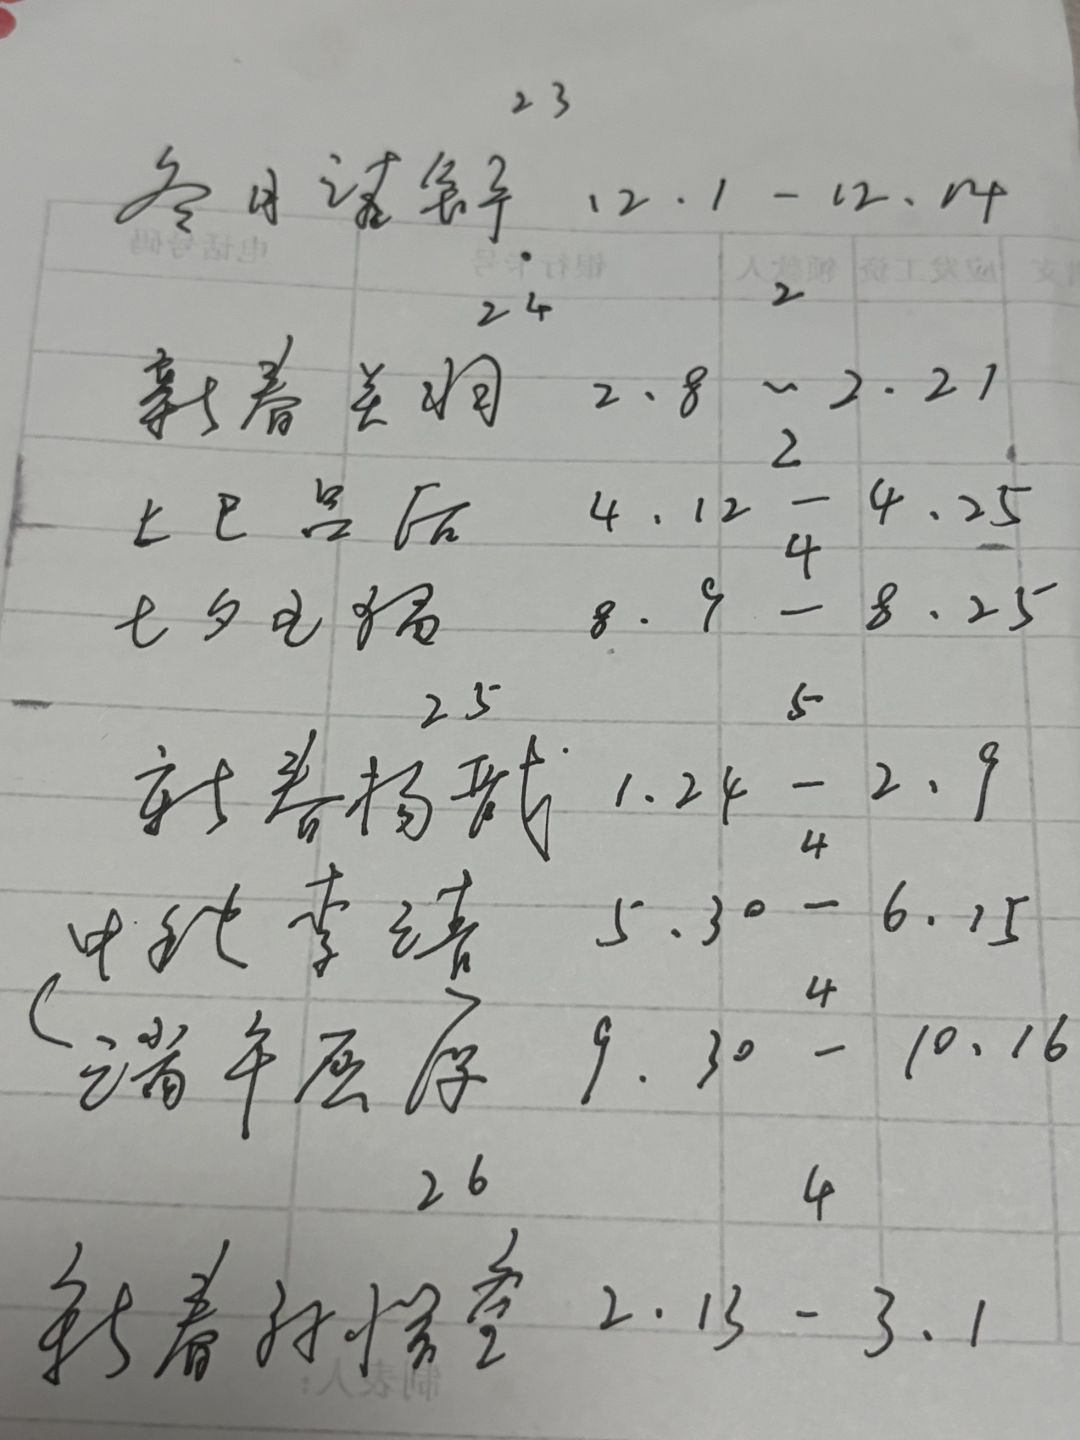 23
冬日诸葛亮 12.1-12.14
24 2
新春关羽 2.8~2.21
2
上巳吕后 4.12-4.25
4
七夕玉环 8.9-8.25
25 5
新春杨戬 1.24-2.9
4
中秋李靖 5.30-6.15
4
(端午屈原 9.30-10.16
26 4
新春孙悟空 2.13-3.1
电话号码 银行卡号 领款人 应发工资
制表人: